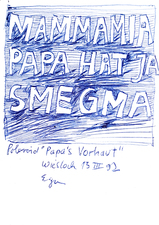 MAMMAMIA
PAPA HAT JA
SMEGMA
Polaroid "Papa's Vorhaut"
Wiesloch 13 III 92